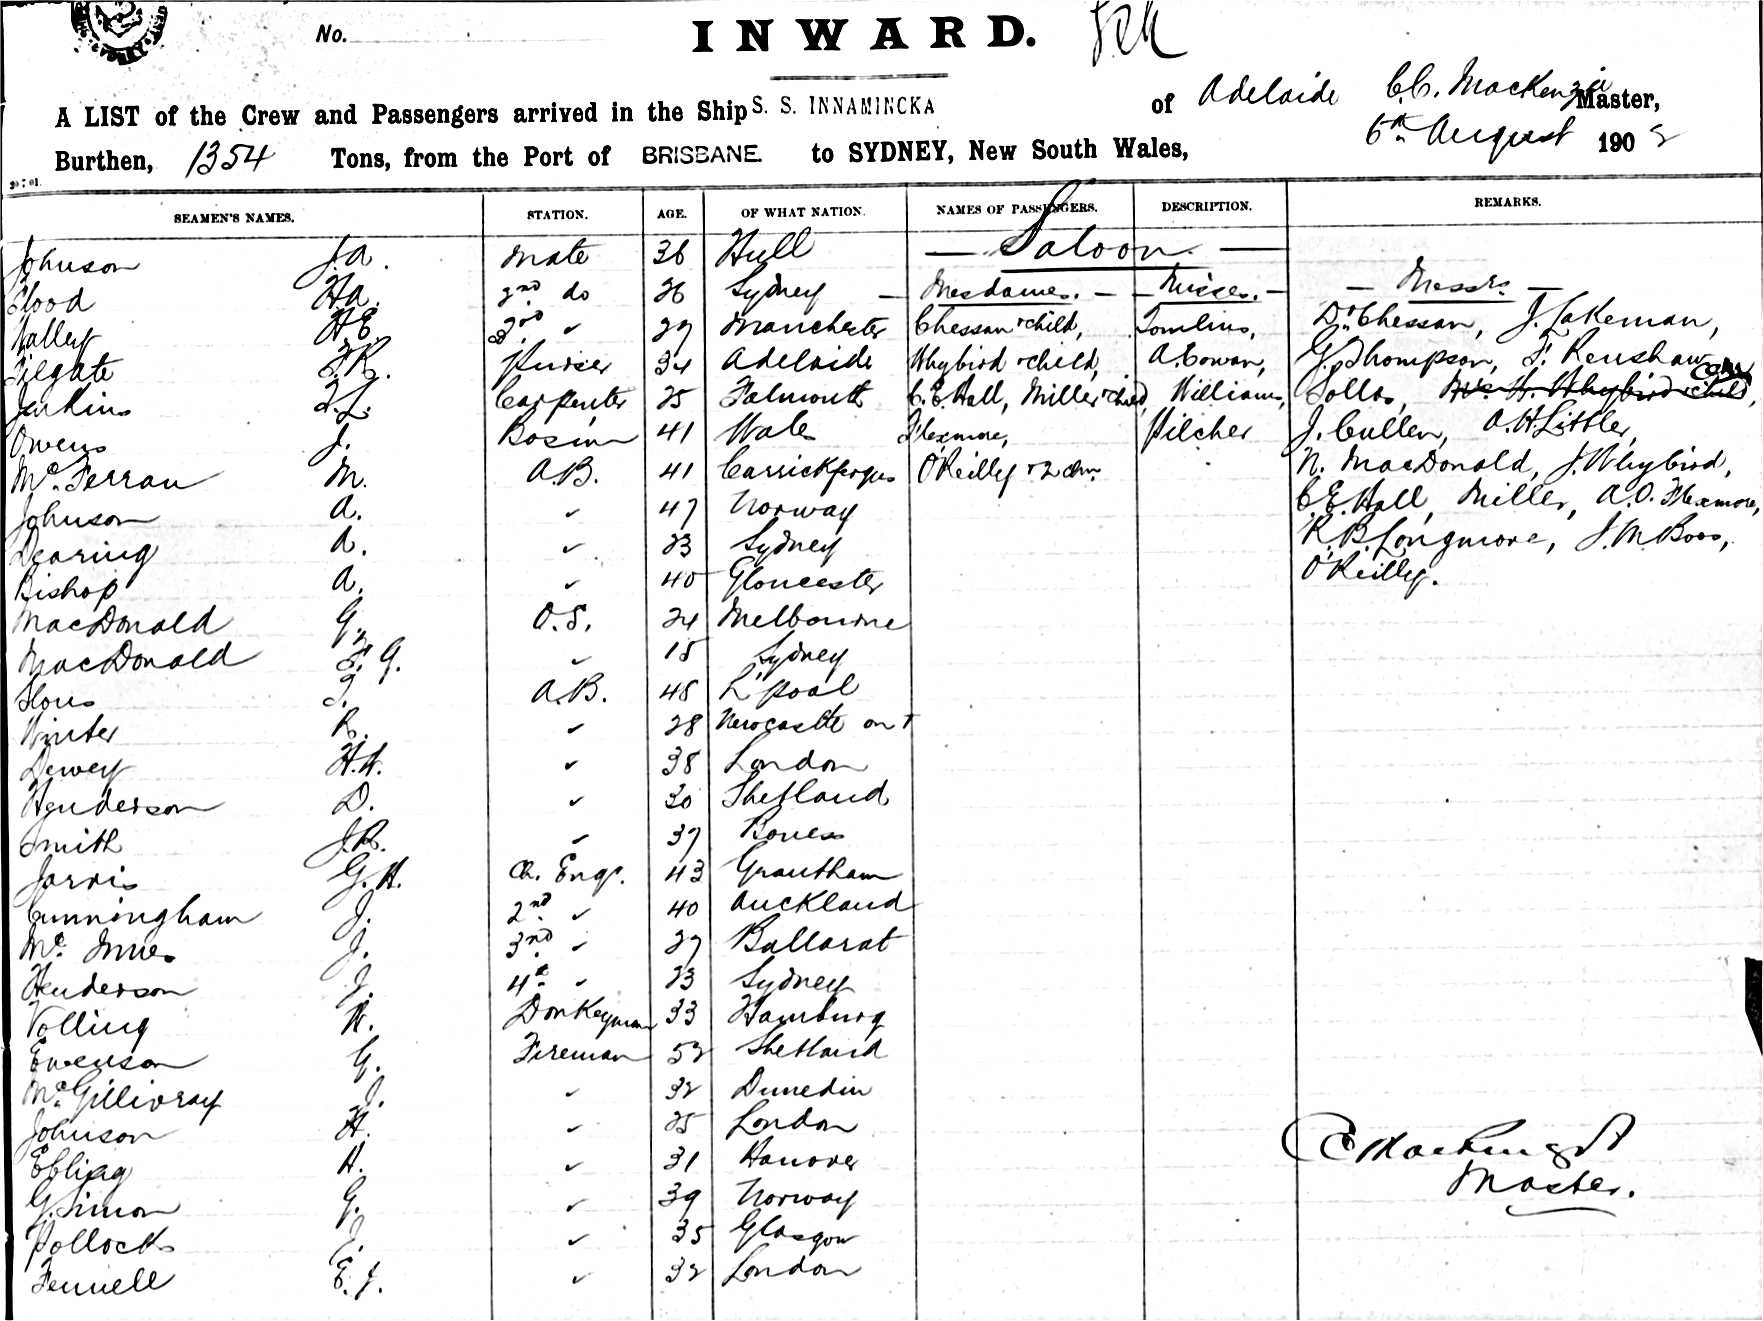 No.
INWARD.
A LIST of the Crew and Passengers arrived in the Ship S. S. INNAMINCKA of Adelaide C.C. MacKenzie Master,
Burthen, 1354 Tons, from the Port of BRISBANE to SYDNEY, New South Wales, 6th August 1902
SEAMEN'S NAMES. STATION. AGE. OF WHAT NATION. NAMES OF PASSENGERS. DESCRIPTION. REMARKS.
Johnson J.A. Mate 36 Hull — Saloon. —
Flood H.A. 2nd do 26 Sydney — Mesdames. — — Misses. — — Messrs. —
Nalley H.E. 3rd ✓ 29 Manchester Chessan & child, Tomlins, Dr. Chessan, J. Lakeman,
Filgate F.R. Purser 34 Adelaide Whybird & child, A. Cowan, G. Thompson, F. Renshaw
Jenkins T.L. Carpenter 25 Falmouth C.E. Hall, Miller & child, Williams, Sollos,
Owens J. Bosun 41 Wales Flexmore, Pilcher J. Cullen, A.H. Littler,
McFerran M. A.B. 41 Carrickfergus O'Reilly & 2 chn. N. MacDonald, J. Whybird,
Johnson A. ✓ 47 Norway C.E. Hall, Miller, A.O. Flexmore,
Dearing A. ✓ 23 Sydney R.B. Longmore, J.M. Boos,
Bishop A. ✓ 40 Gloucester O'Reilly.
MacDonald G. O.S. 24 Melbourne
MacDonald F. G. ✓ 15 Sydney
T. A.B. 48 L'pool
Winter R. ✓ 28 Newcastle on T
Dewey H.H. ✓ 38 London
Henderson D. ✓ 30 Shetland
Smith J.R. ✓ 37 Boness
Jarvis G.H. Ch. Engr. 43 Grantham
Cunningham J. 2nd ✓ 40 Auckland
McInnes J. 3rd ✓ 27 Ballarat
Henderson J. 4th ✓ 23 Sydney
Volling H. Donkeyman 33 Hamburg
Evenson G. Fireman 52 Shetland
McGillivray J. ✓ 32 Dunedin
Johnson H. ✓ 25 London
Ebling H. ✓ 31 Hanover
G. Simon G. ✓ 39 Norway
Pollock J. ✓ 35 Glasgow
Fennell E. J. ✓ 32 London
C C MacKenzie
Master.